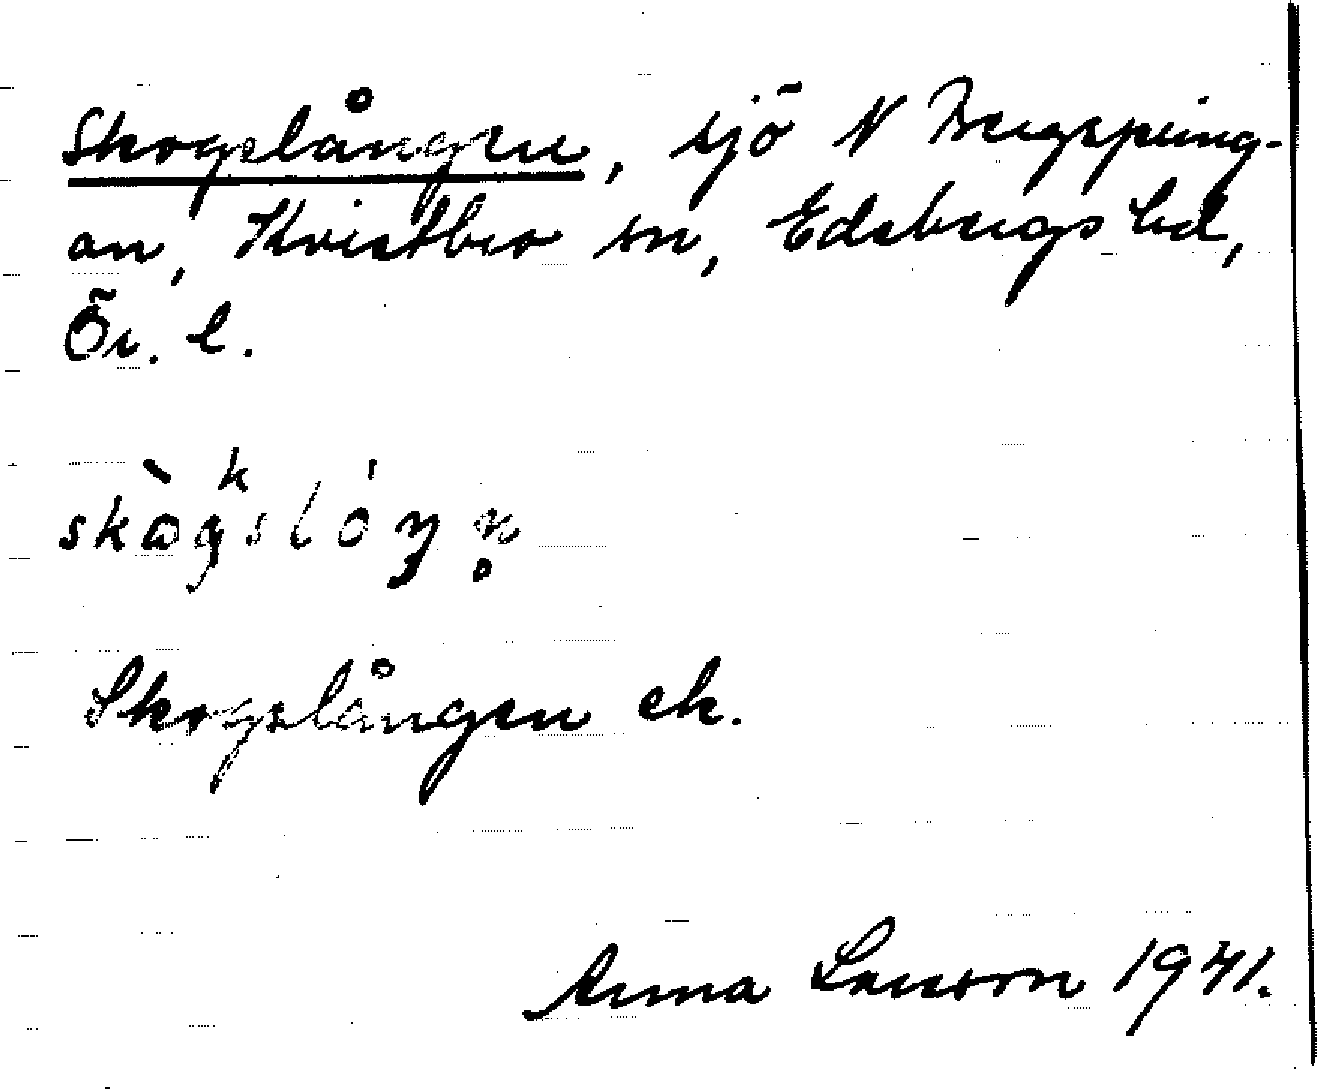 Skogslången, sjö N Bergspäng-
an, Kvistbro sn, Edsbergs hd,
Ör. l.
Skogslången ek.
Anna Larsson 1941.